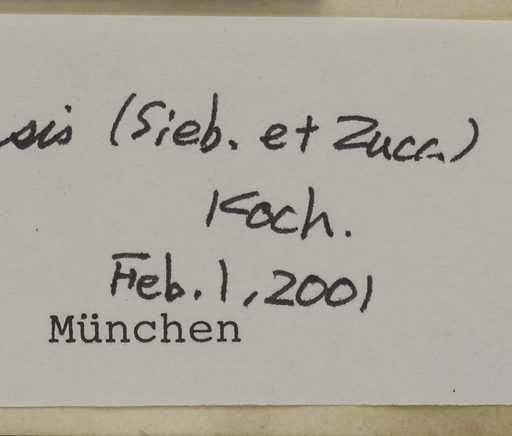 sis (Sieb. et Zucc.)
Koch.
Feb. 1, 2001
München